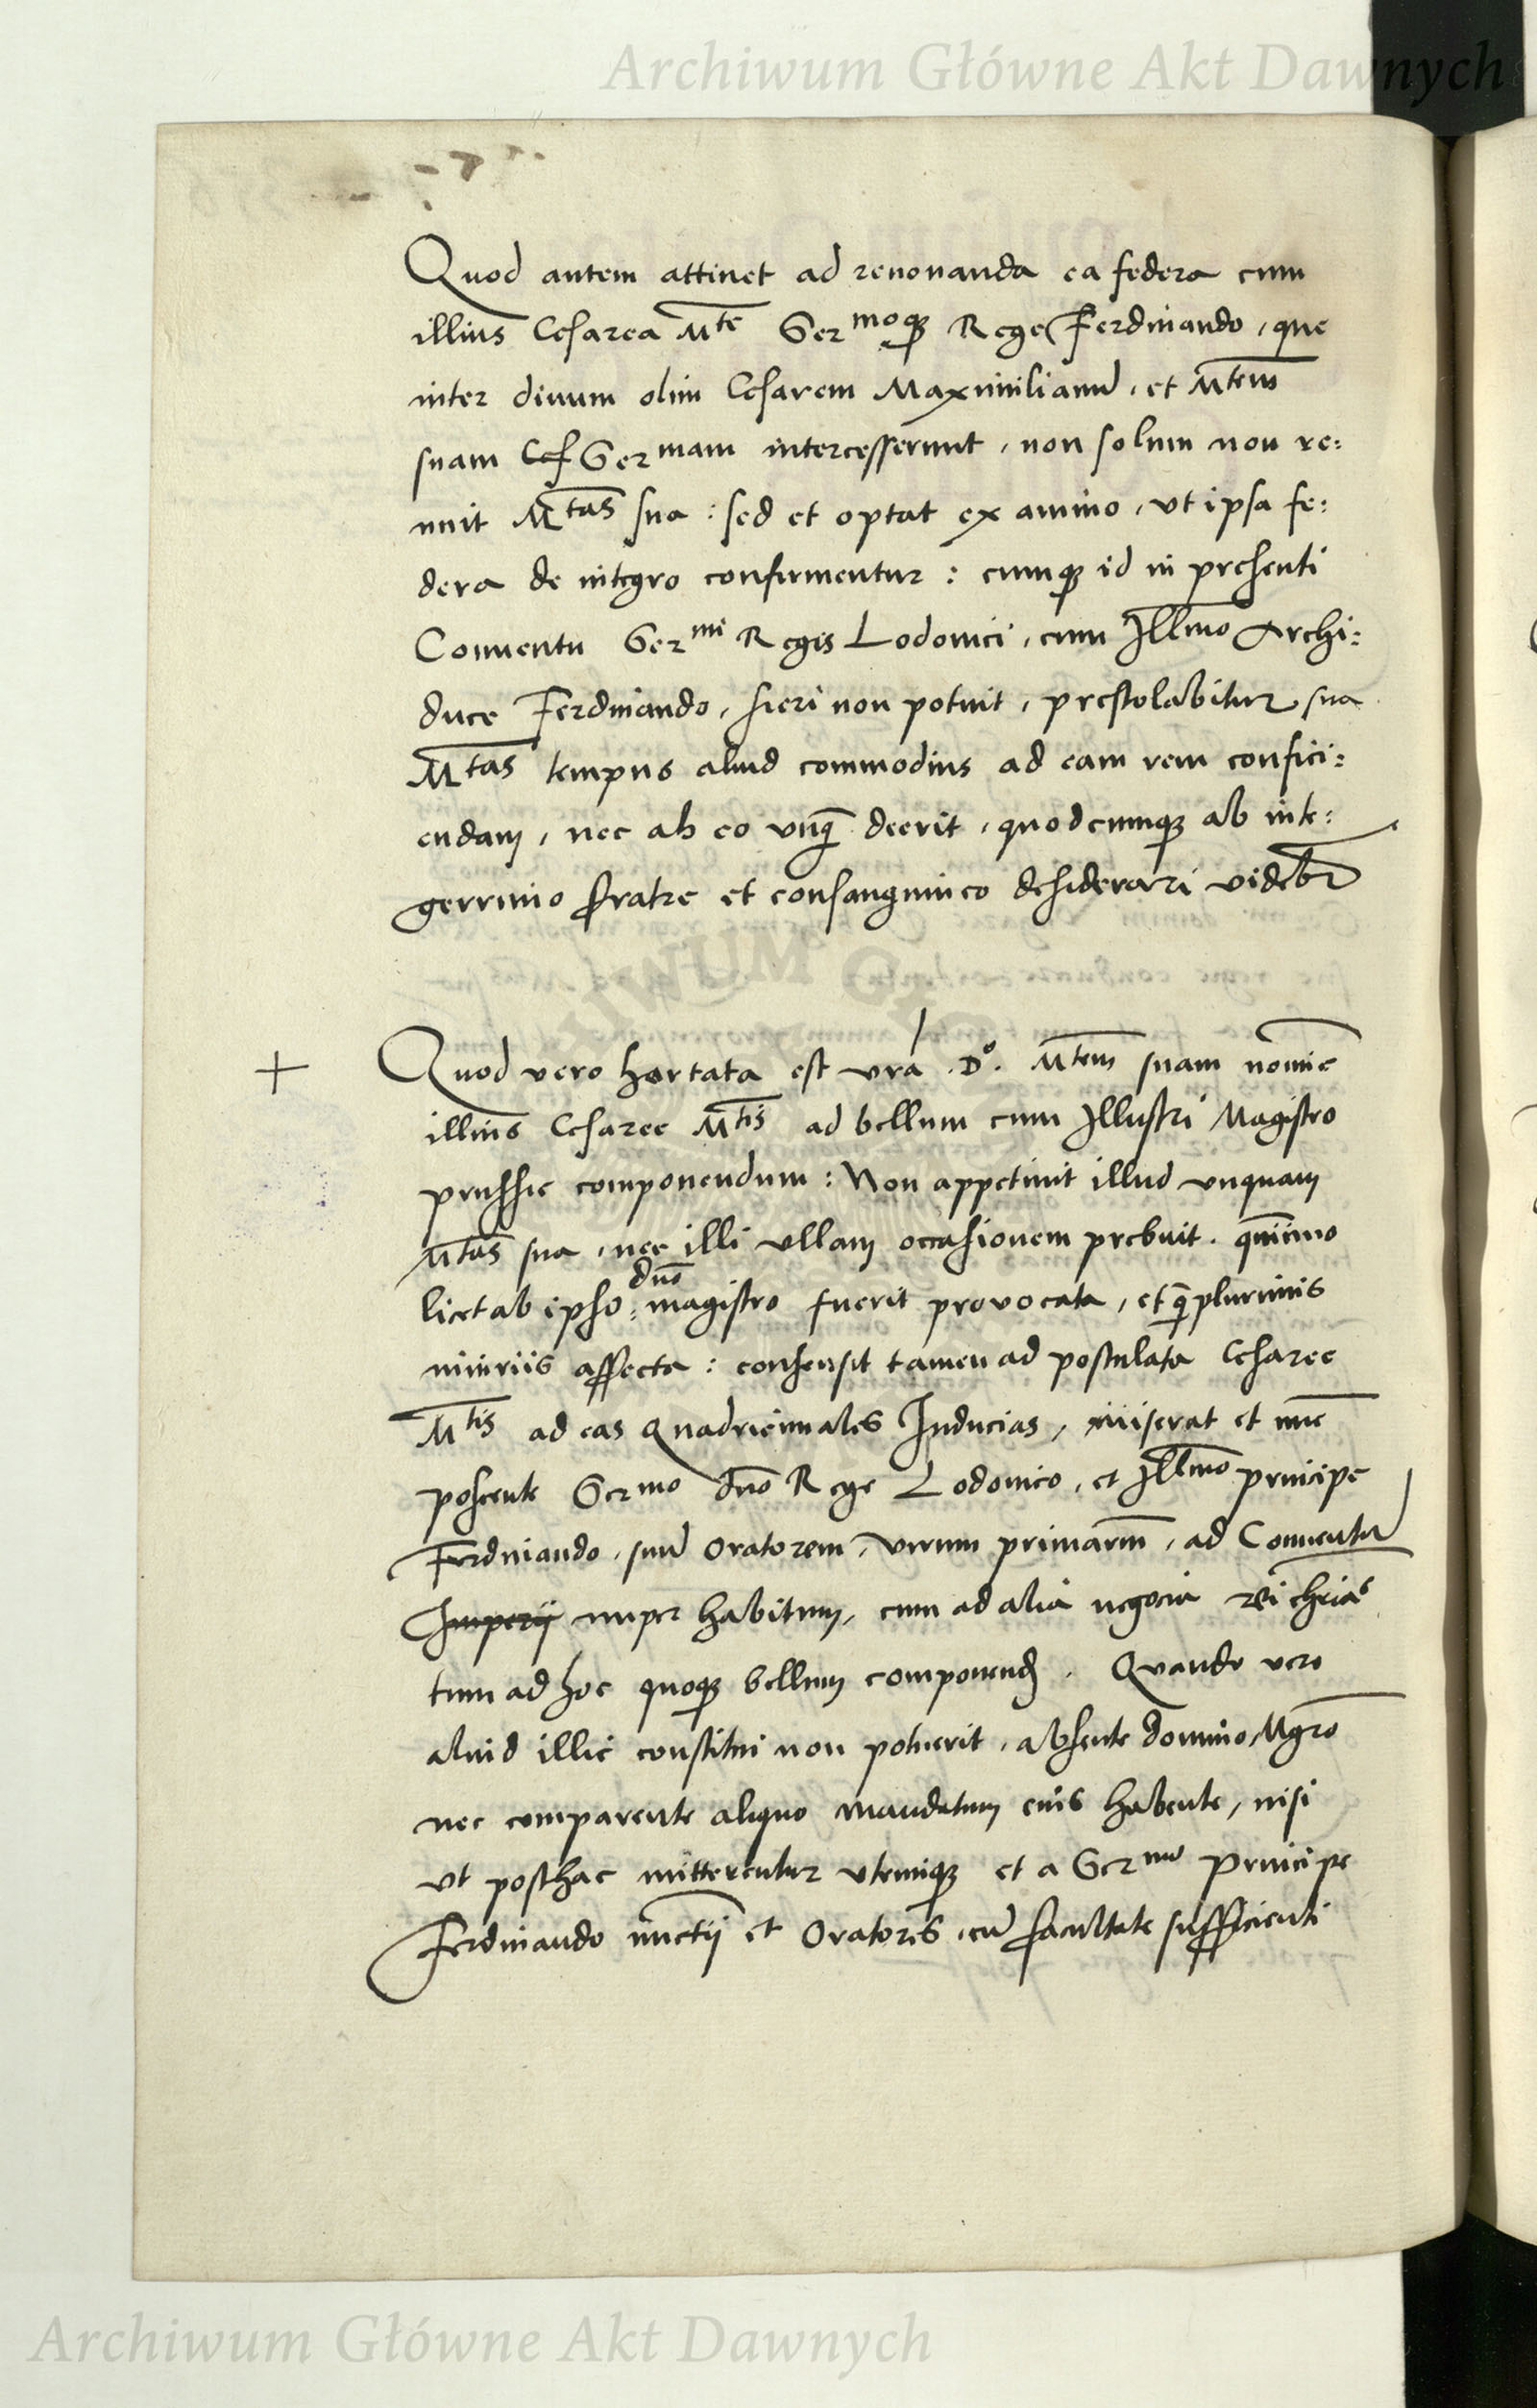 Archiwum Główne Akt Dawnych
Quod autem attinet ad renovanda ea federa cum
illius Cesarea Mte Sermoque Rege Ferdinando, que
inter divum olim Cesarem Maximilianu, et Mtem
suam Ces Sermam intercesserunt, non solum non re:
nuit Mtas sua: sed et optat ex animo, ut ipsa fe:
dera de integro confirmentur: cumque id in presenti
Conventu Sermi Regis Lodovici, cum Illmo Archi:
duce Ferdinando, fieri non potuit, prestolabitur sua
Mtas tempus aliud commodius ad eam rem confici:
endam, nec ab eo unqua deerit, quodcumque ab inte:
gerrimo fratre et consanguineo desiderari videbr
+ Quod vero hortata est vra .Do. Mtem suam nomine
illius Cesaree Mtis ad bellum cum Illustri Magistro
prussie componendum: Non appetivit illud unquam
Mtas sua, nec illi ullam occasionem prebuit. quinimo
licet ab ipso dno magistro fuerit provocata, et qplurimis
iniuriis affecta: consensit tamen ad postulata Cesaree
Mtis ad eas Quadriennales Inducias, miserat et nunc
poscente Sermo dno Rege Lodovico, et Illmo principe
Ferdinando, suu Oratorem, virum primarm, ad Conventu
Imperij nuper habitum, cum ad alia negocia rei chrias
tum ad hoc quoque bellum componend. Quando vero
aliud illic constitui non potuerit, absente domino Mgro
nec comparente aliquo mandatum eius habente, nisi
ut posthac mitterentur utrinque et a Sermo Principe
Ferdinando nuncij et Oratores, cu facultate sufficienti
Archiwum Główne Akt Dawnych